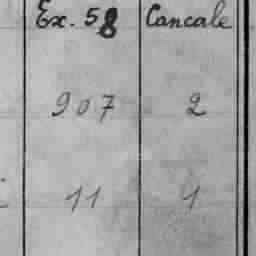 Ex. 58 Cancale
907 2
11 1